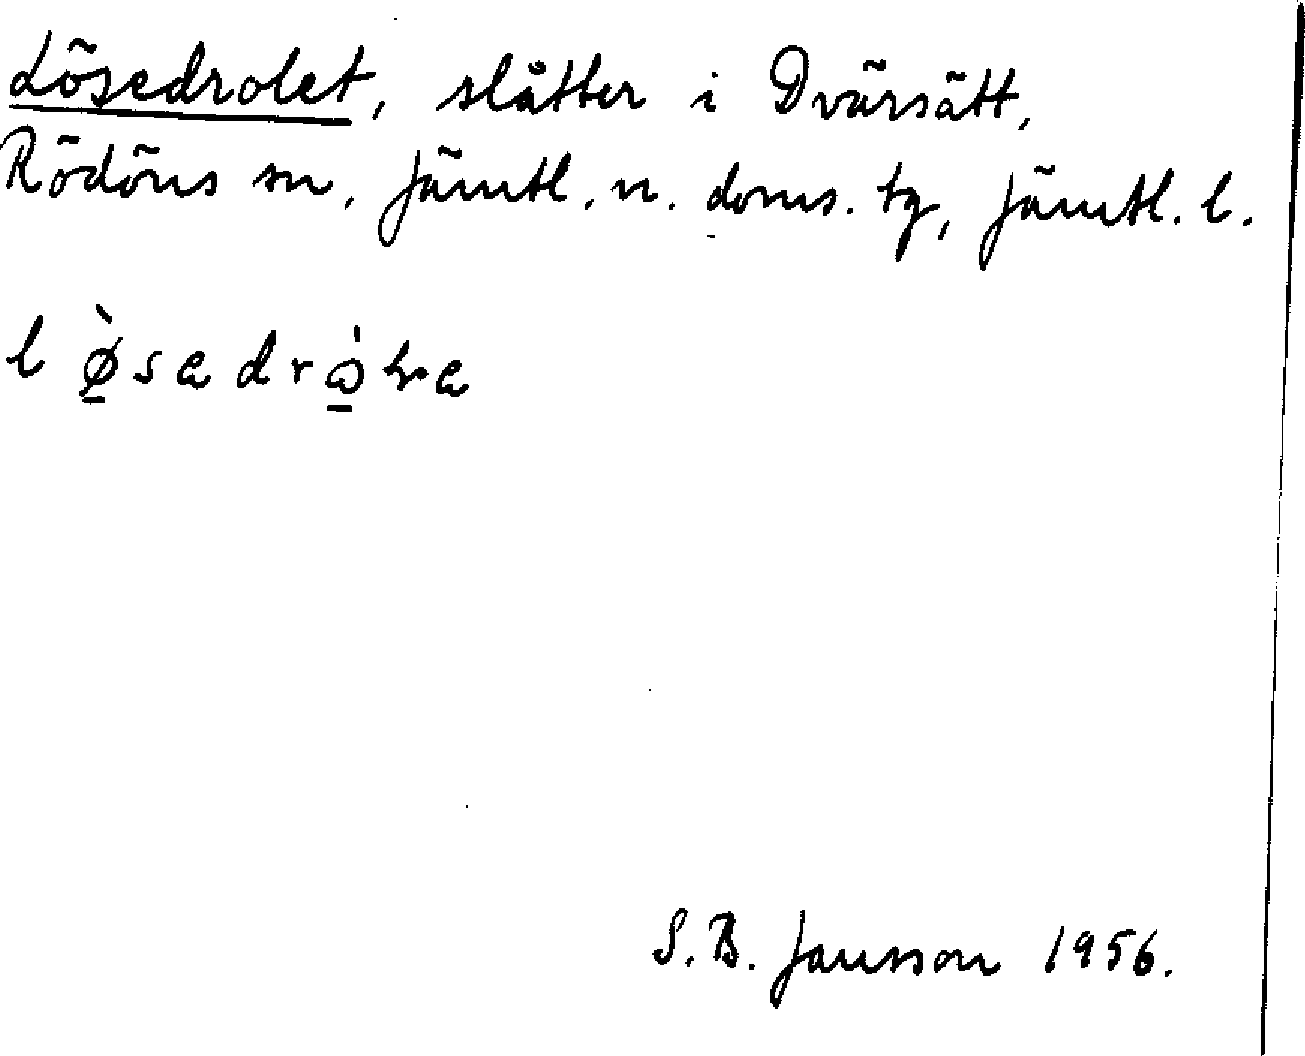 Lösedrolet, slåtter i Dvärsätt,
Rödöns sn, Jämtl. n. doms. tg, Jämtl. l.
S. B. Jansson 1956.